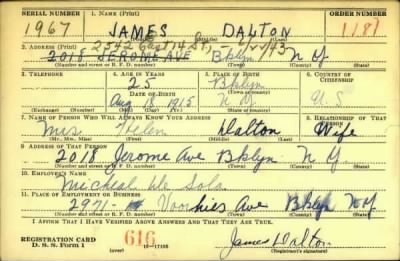 SERIAL NUMBER 1. NAME (Print) ORDER NUMBER
1967 JAMES DALTON 1181
(First) (Middle) (Last)
2542 East 14 St, 6/22/43
2. ADDRESS (Print)
2018 JEROME AVE Bklyn N Y
(Number and street or R. F. D. number) (Town) (County) (State)
3. TELEPHONE 4. AGE IN YEARS 5. PLACE OF BIRTH 6. COUNTRY OF CITIZENSHIP
25 Bklyn
DATE OF BIRTH (Town or county)
Aug 18 1915 N Y U.S
(Exchange) (Number) (Mo.) (Day) (Yr.) (State or country)
7. NAME OF PERSON WHO WILL ALWAYS KNOW YOUR ADDRESS 8. RELATIONSHIP OF THAT PERSON
Mrs Helen Dalton Wife
(Mr., Mrs., Miss) (First) (Middle) (Last)
9. ADDRESS OF THAT PERSON
2018 Jerome Ave Bklyn N Y.
(Number and street or R. F. D. number) (Town) (County) (State)
10. EMPLOYER'S NAME
Micheal De Sola
11. PLACE OF EMPLOYMENT OR BUSINESS
2971- Voorhies Ave Bklyn NY
(Number and street or R. F. D. number) (Town) (County) (State)
I AFFIRM THAT I HAVE VERIFIED ABOVE ANSWERS AND THAT THEY ARE TRUE.
REGISTRATION CARD
D. S. S. Form 1 (over) 616 James Dalton
(Registrant's signature)